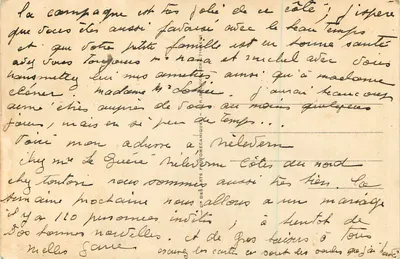 la campagne est très jolie de ce côté; j'espère
que vous êtes aussi favorisé avec le beau temps
et que votre petite famille est en bonne santé
avez vous toujours et michel avec vous
transmettez lui mes amitiés, ainsi qu'à madame
madame J'aurai beaucoup
aimé être auprès de vous au moins quelques
jours, mais en si peu de temps...
Voici mon adresse à
chez Mr le Côtes du nord
chez tonton nous sommes aussi très bien. la
semaine prochaine nous allons a un mariage
il y a 120 personnes invités, à bientôt de
vos bonnes nouvelles. et de gros baisers à tous
cartes ce sont les seules que j'ai